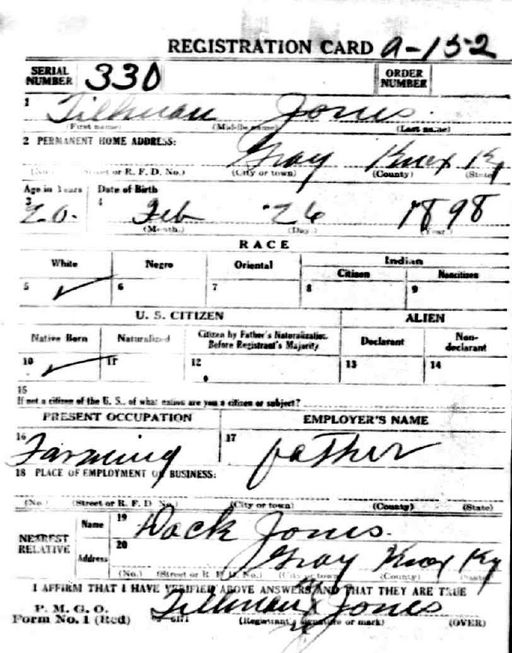 REGISTRATION CARD A-152
SERIAL NUMBER 330 ORDER NUMBER
1 Tillman Jones.
(First name) (Middle name) (Last name)
2 PERMANENT HOME ADDRESS: Gray Knox Ky
(No.) (Street or R. F. D. No.) (City or town) (County) (State)
Age in Years Date of Birth
3 20. 4 Feb 26 1898
(Month.) (Day.) (Year.)
RACE
White Negro Oriental Indian
Citizen Noncitizen
5 ✓ 6 7 8 9
U. S. CITIZEN ALIEN
Native Born Naturalized Citizen by Father's Naturalization Before Registrant's Majority Declarant Non-declarant
10 ✓ 11 12 13 14
15
If not a citizen of the U. S., of what nation are you a citizen or subject?
PRESENT OCCUPATION EMPLOYER'S NAME
16 Farming 17 father
18 PLACE OF EMPLOYMENT OR BUSINESS:
(No.) (Street or R. F. D. No.) (City or town) (County) (State)
NEAREST RELATIVE Name 19 Dock Jones.
Address 20 Gray Knox Ky
(No.) (Street or R. F. D. No.) (City or town) (County) (State)
I AFFIRM THAT I HAVE VERIFIED ABOVE ANSWERS AND THAT THEY ARE TRUE
P. M. G. O.
Form No. 1 (Red) Tillman X Jones
(Registrant's signature or mark) (OVER)